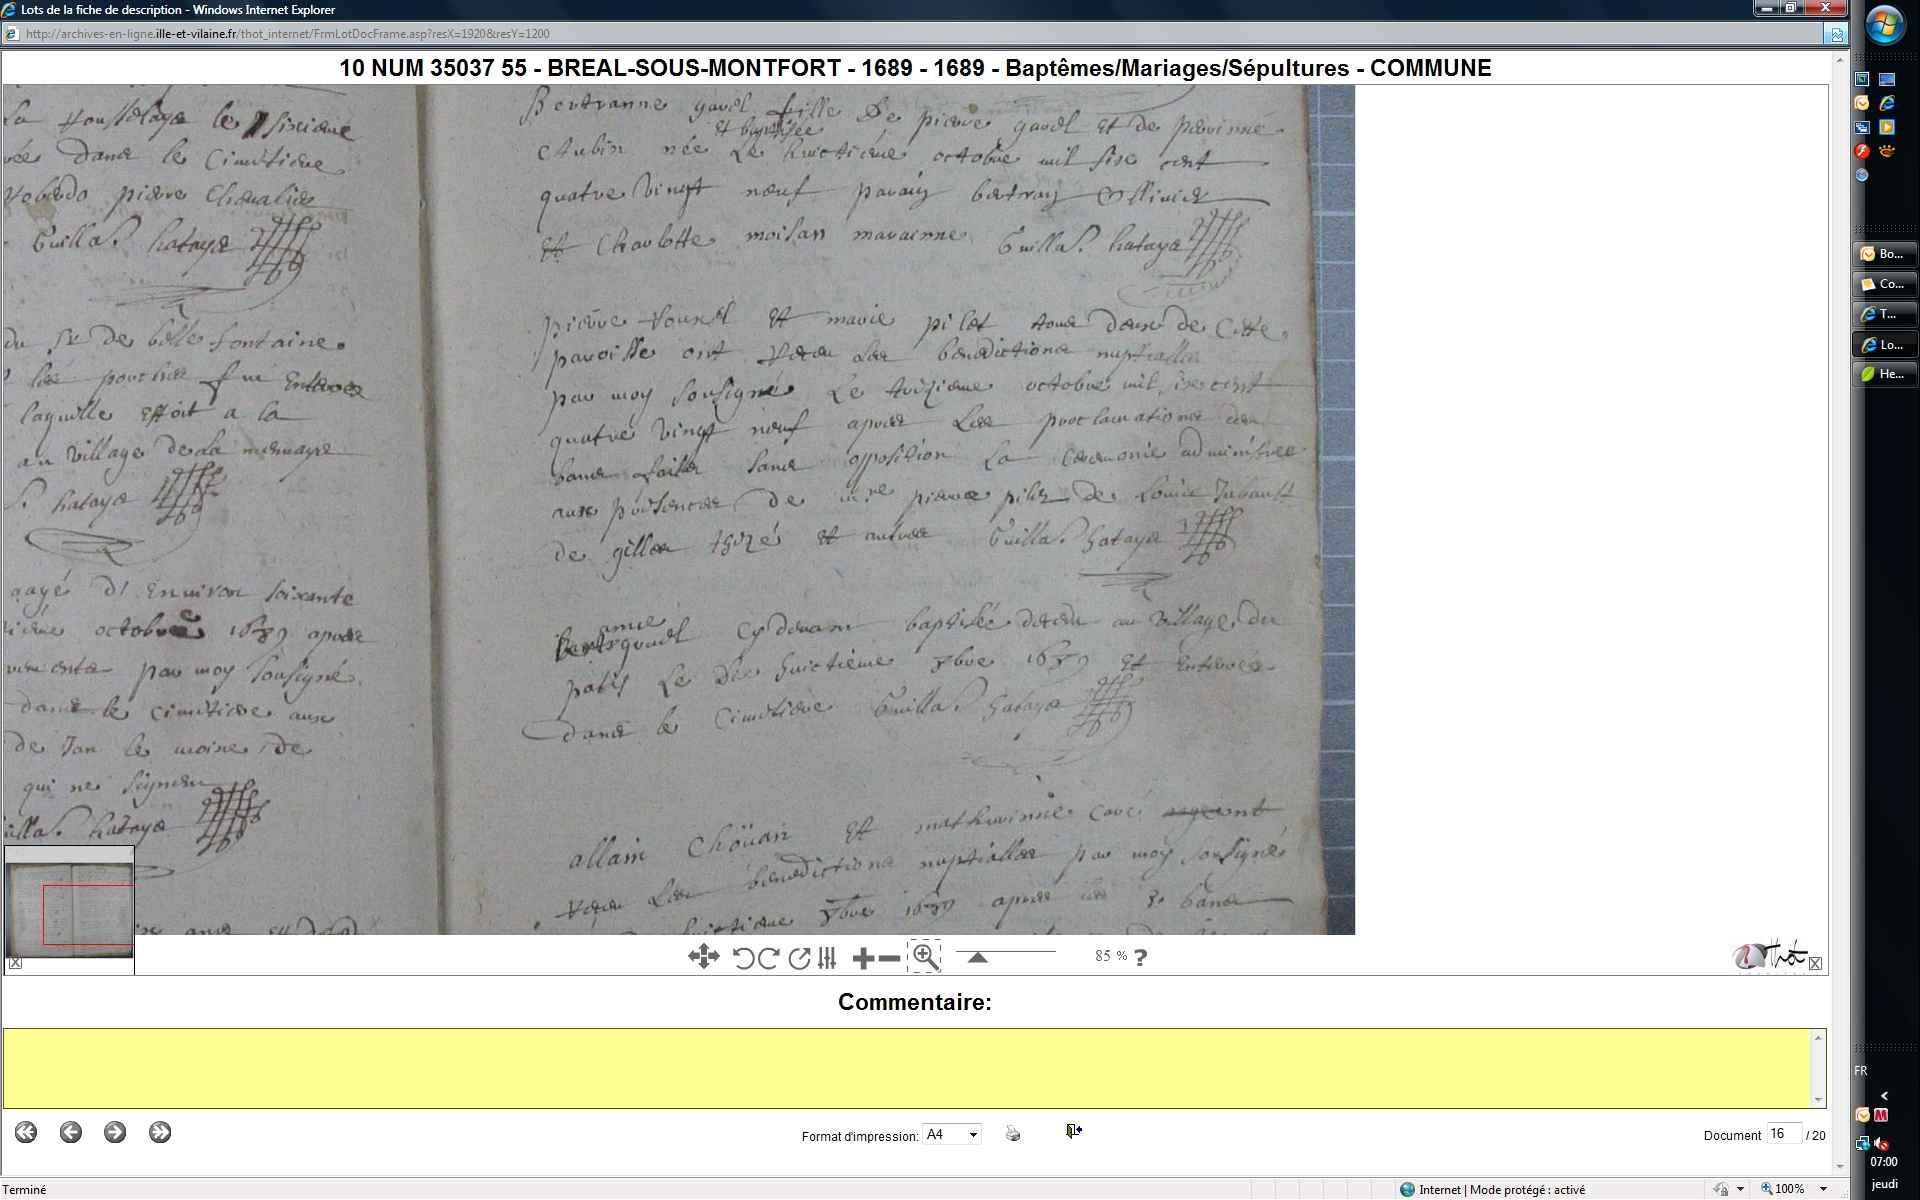 Lots de la fiche de description - Windows Internet Explorer
http://archives-en-ligne.ille-et-vilaine.fr/thot_internet/FrmLotDocFrame.asp?resX=1920&resY=1200
10 NUM 35037 55 - BREAL-SOUS-MONTFORT - 1689 - 1689 - Baptêmes/Mariages/Sépultures - COMMUNE
le sixieme
dans le Cimitiere
pierre Chevalier
Guilla. hataye
du Sr de belle fontaine
les porches fut Enterree
laquelle estoit a la
au village de la
hataye
aagé d'Environ soixante
octobre 1689 apres
par moy soubsigné
dans le cimitiere aux
de Jan le moine de
qui ne signent
Guilla. hataye
Bertranne gavel fille de pierre gavel et de perrinne
et baptisée
Aubin née le huictieme octobre mil six cent
quatre vingt neuf parain bertran Ollivier
Et Charlotte moisan maraine Guilla. hataye
pierre et marie pilet tous deux de Cette
paroisse ont receu les benedictions nuptialles
par moy soubsigné le treizieme octobre mil six cent
quatre vingt neuf apres les proclamations des
bans faites sans opposition la Ceremonie administree
aux presences de pierre pilet de Louis Jubault
de gilles et autres Guilla. hataye
gavel Cy devant baptisée au village du
patis le dix huictieme 8bre 1689 et Enterrée
dans le Cimitiere Guilla. hataye
allain Choüan Et mathurinne Cavé ont
receu les benedictions nuptialles par moy soubsigné
huictieme 8bre 1689 apres les 3. bans
85 %
Thot
Commentaire:
Format d'impression: A4
Document 16 / 20
Terminé
Internet | Mode protégé : activé
100%
Bo...
Co...
T...
Lo...
He...
FR
07:00
jeudi